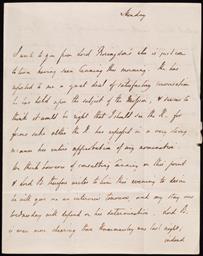 Monday
I write to you from Lord Farringdon's who is just come
to town having seen Canning this morning. He has
repeated to me a great deal of satisfactory conversation
he has held upon the subject of the Mission, & seems to
think it would be right that I should see the K. for
forms sake altho the K has expressed in a very strong
manner his entire approbation of my nomination
he thinks however of consulting Canning on this point
& Lord F. therefore writes to him this evening to desire
he will give me an interview tomorrow and my stay over
Wednesday will depend on his determination. Lord F.
is even more cheering than
last night,
indeed